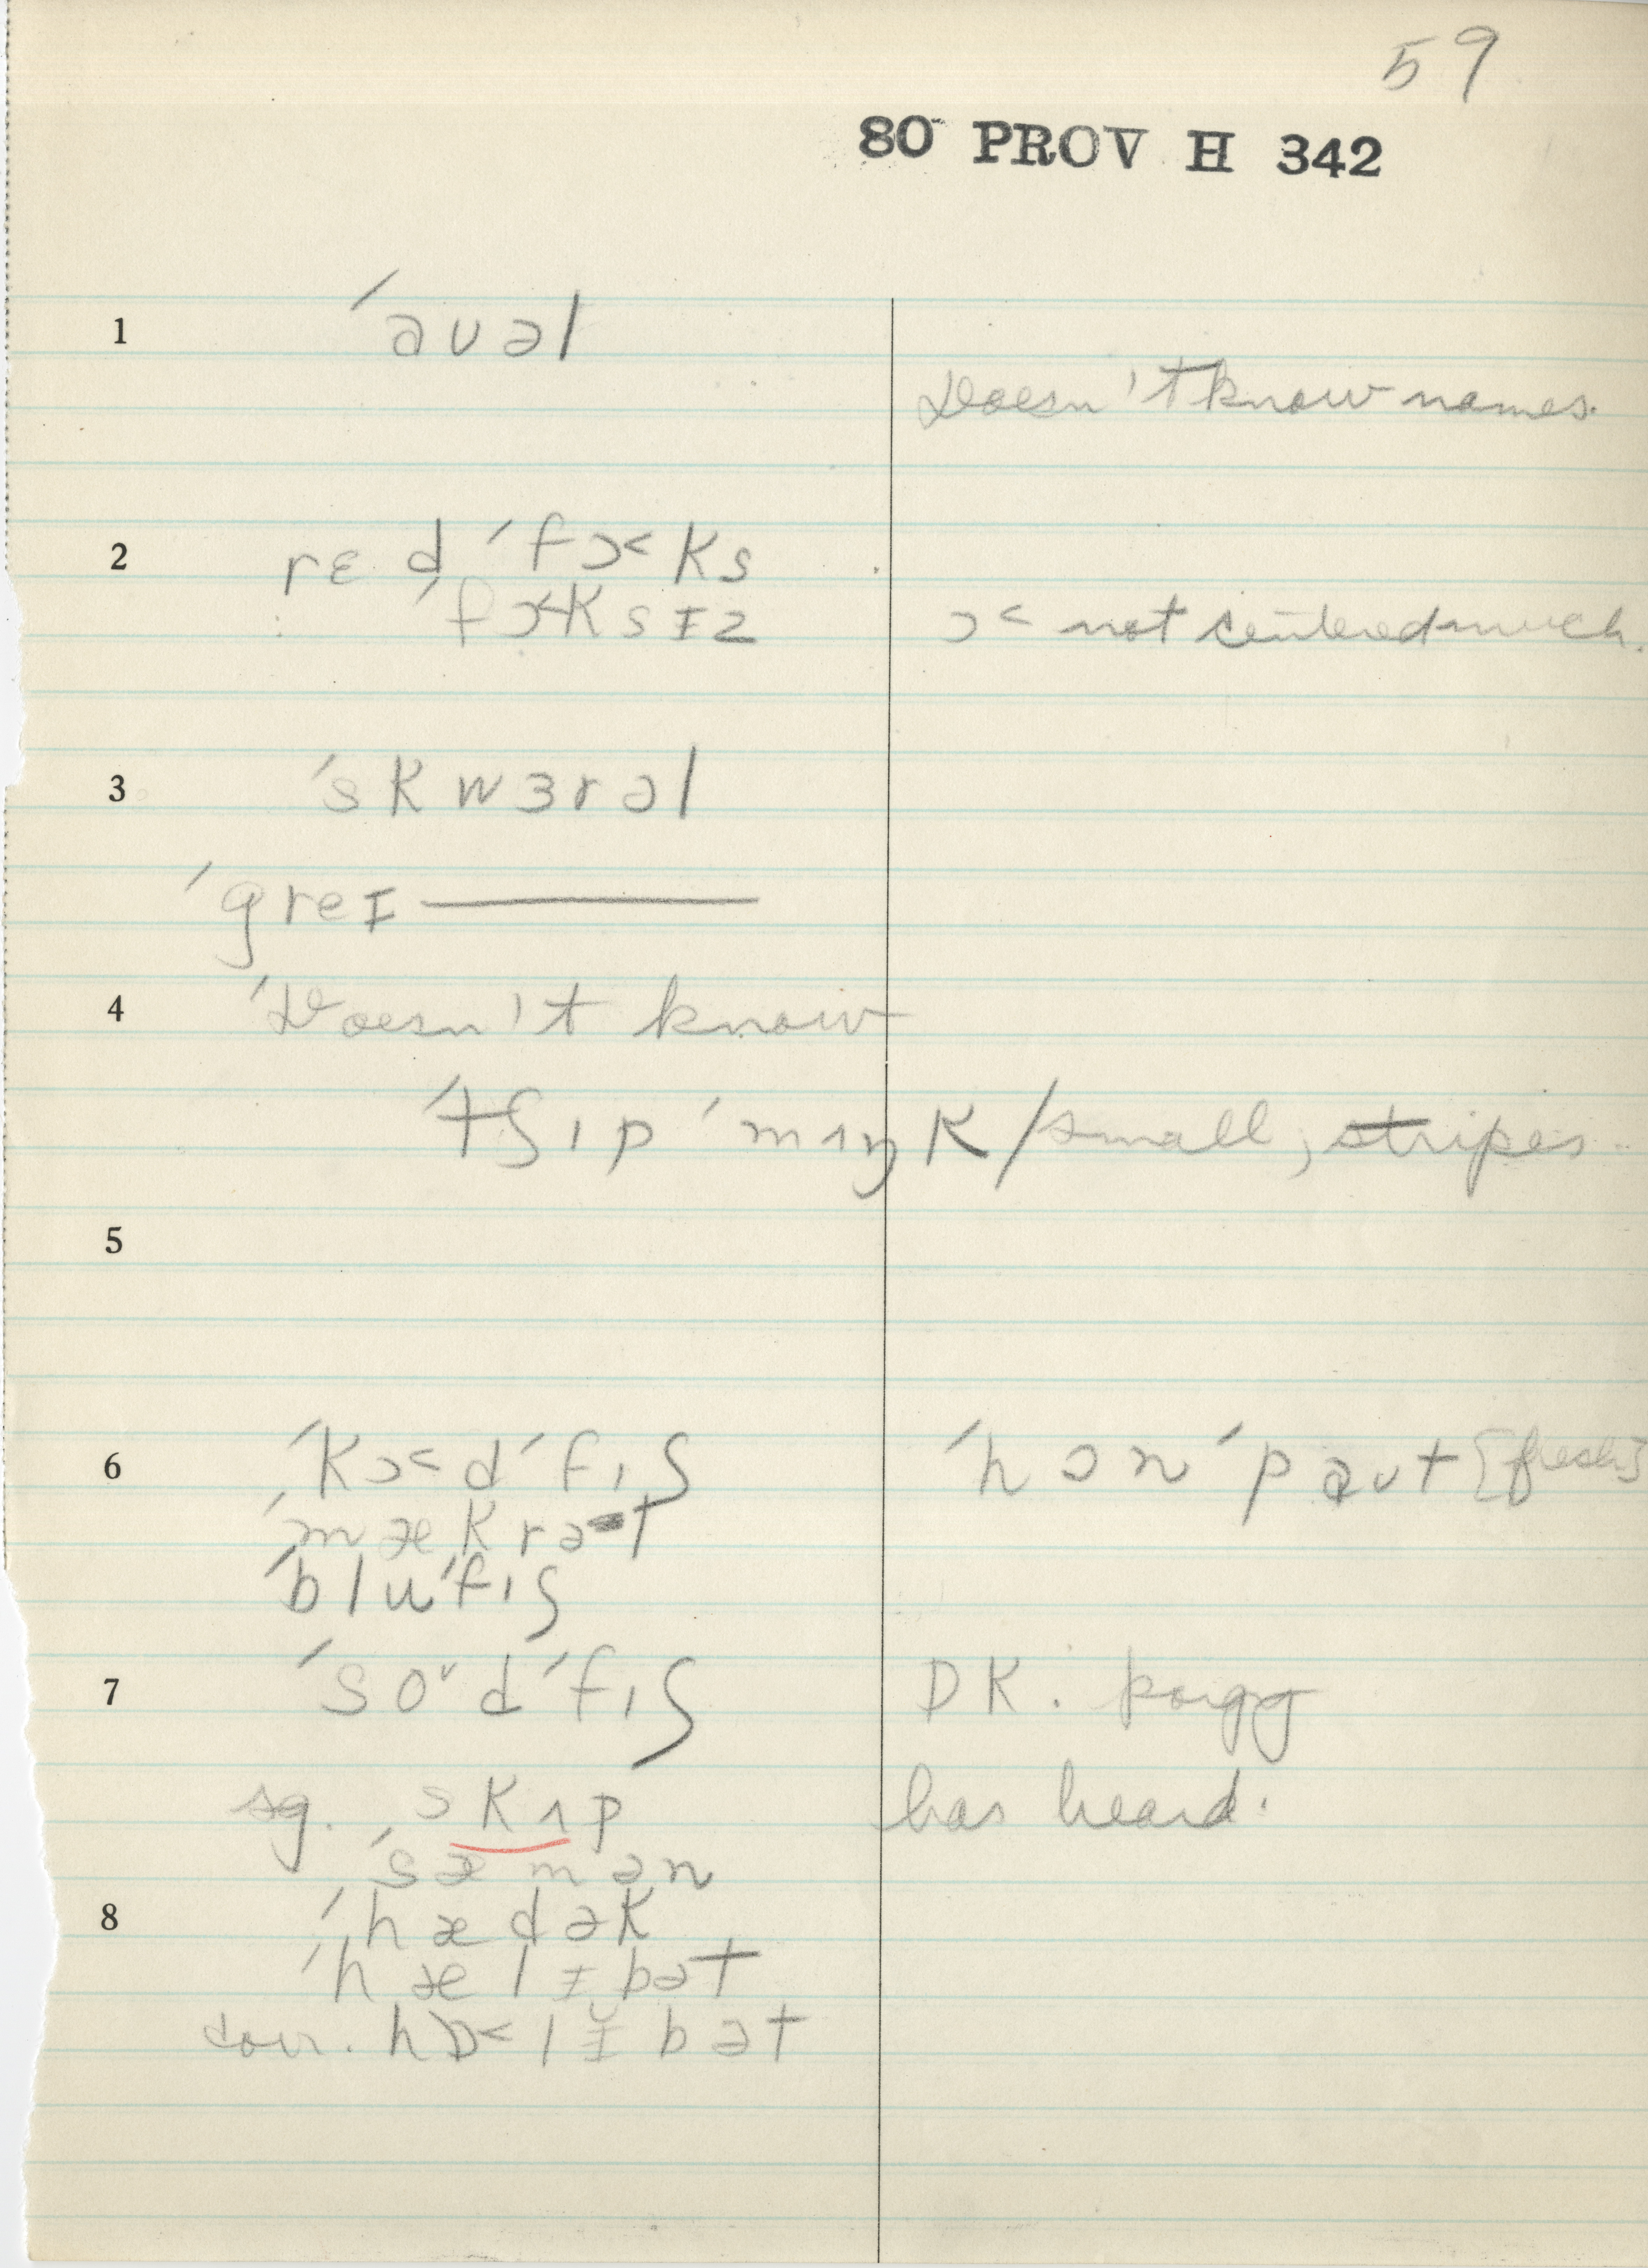 59
80 PROV H 342
1 ´aʊəl
Doesn't know names.
2 rɛd ´fɔ˂ks
´fɔ˂ksɪz ɔ˂ not centered much.
3 ´skwɜrəl
´greɪ ———
4 ´Doesn't know
´tʃɪp ´mɪŋk / small, stripes
5
6 ´kɔ˂d ´fɪʃ ´hɔn ´paʊt [fresh]
´mækrət
´blu ´fɪʃ
7 ´soᵛd ´fɪʃ DK. porgy
sg. skɪp has heard.
´sæmən
8 ´hædək
´hælɪbət
corr. hɒ˂lɪ̆bət